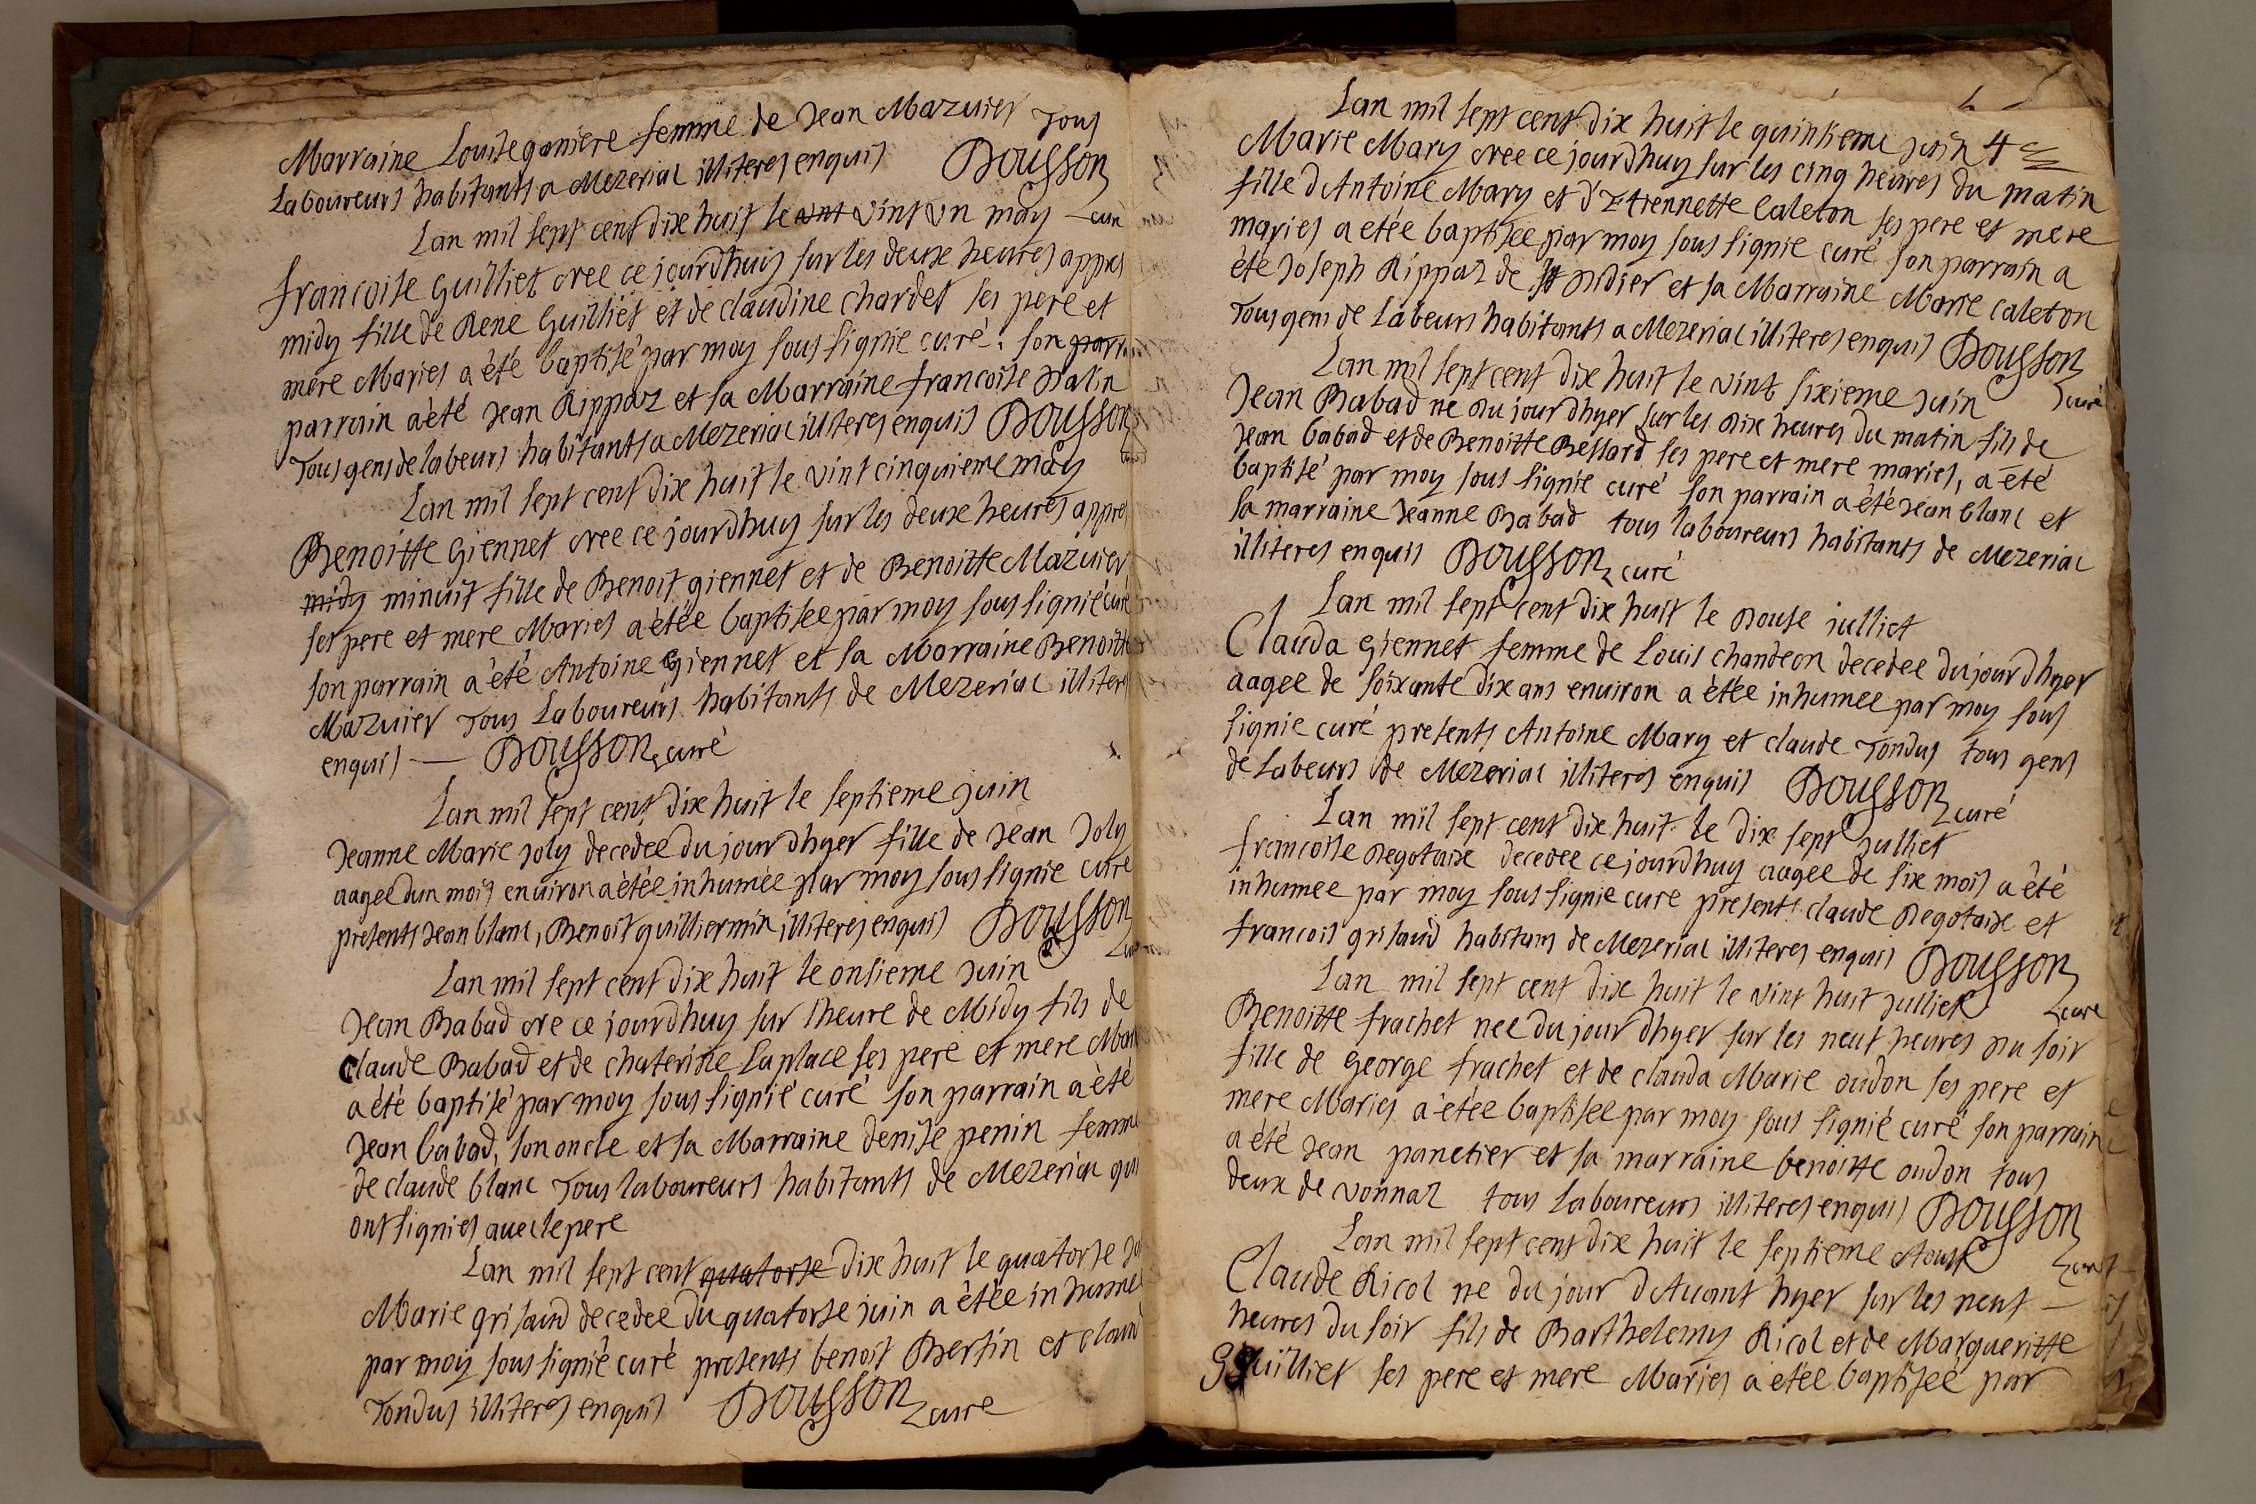 Marraine Louise ganiere femme de Jean Mazuier Tous
Laboureurs habitants a Mezeriac illiteres enquis Dousson
curé
Lan mil sept cent dix huit le vint vint un may
francoise Guilliet nee ce jourdhuy sur les deux heures appres
midy fille de Rene Guilliet et de claudine chardet ses pere et
mere Maries a été baptisé par moy sous signie curé. son parr
parrain a été Jean Rippaz et sa Marraine francoise
Tous gens de labeurs habitants a Mezeriac illiteres enquis Dousson
curé
Lan mil sept cent dix huit le vint cinquieme may
Benoitte Giennet nee ce jourdhuy sur les deux heures appres
midy minuit fille de Benoit giennet et de Benoitte Mazuier
ses pere et mere Maries a étée baptisee par moy sous signié curé
son parrain a été Antoine Giennet et sa Marraine Benoitte
Mazuier Tous Laboureurs habitants de Mezeriac illiteres
enquis — Dousson curé
Lan mil sept cent dix huit le septieme juin
Jeanne Marie joly decedee du jour dhyer fille de Jean Joly
aagee dun mois enuiron a étée inhumée par moy sous signie curé
presents Jean blanc, Benoit guilliermin illiteres enquis Dousson
curé
Lan mil sept cent dix huit le onsieme juin
Jean Babad ne ce jourdhuy sur lheure de Midy fils de
Claude Babad et de chaterine Laplace ses pere et mere Mari
a été baptisé par moy sous signié curé son parrain a été
Jean babad, son oncle et sa Marraine denise penin femme
de claude blanc Tous laboureurs habitants de Mezeriac qui
ont signies auec le pere
Lan mil sept cent quatorse dix huit le quatorse
Marie grisaud decedee du quatorse juin a étée inhumee
par moy sous signié curé presents benoit Bertin et claud
Tondus illiteres enquis Dousson curé
Lan mil sept cent dix huit le quinsieme juin 4
Marie Mary nee ce jourdhuy sur les cinq heures du matin
fille dAntoine Mary et d'Etiennette Caleton ses pere et mere
maries a etée baptisée par moy sous signie curé son parrain a
été Joseph Rippaz de st Didier et sa Marraine Marie Caleton
Tous gens de Labeurs habitants a Mezeriac illiteres enquis Dousson
curé
Lan mil sept cent dix huit le vint sixieme Juin
Jean Babad ne du jour dhyer sur les dix heures du matin fils de
Jean babad et de Benoitte Bellard ses pere et mere maries, a été
baptisé par moy sous signie curé son parrain a été Jean blanc et
sa marraine Jeanne Babad tous laboureurs habitants de Mezeriac
illiteres enquis Dousson curé
Lan mil sept cent dix huit le douse julliet
Clauda Giennet femme de Louis chandeon decedee du jour dhyer
aagee de soixante dix ans enuiron a étée inhumee par moy sous
signie curé presents Antoine Mary et claude Tondus tous gens
de Labeurs de Mezeriac illiteres enquis Dousson curé
Lan mil sept cent dix huit le dix sept julliet
francoise Degotaix decedee ce jourdhuy aagee de six mois a été
inhumee par moy sous signie cure presents claude Degotaix et
francois grisaud habitans de Mezeriac illiteres enquis Dousson
curé
Lan mil sept cent dix huit le vint huit julliet
Benoitte frachet nee du jour dhyer sur les neuf heures du soir
fille de George frachet et de clauda Marie oudon ses pere et
mere Maries a étée baptisee par moy sous signié curé son parrain
a été Jean panetier et sa marraine benoitte oudon tous
deux de vonnaz tous laboureurs illiteres enquis Dousson
curé
Lan mil sept cent dix huit le septieme Aoust
Claude Ricol ne du jour dAuant hyer sur les neuf —
heures du soir fils de Barthelemy Ricol et de Margueritte
Guilliet ses pere et mere Maries a étée baptiseé par